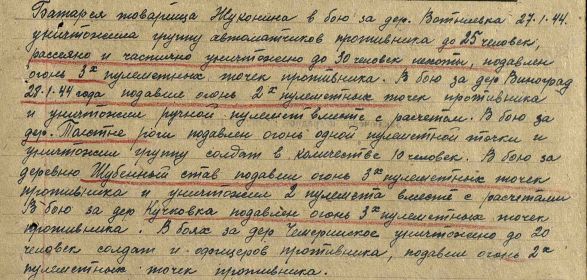 Батарея товарища Жуконина в бою за дер. Вотылевка 27-1-44.
уничтожила группу автоматчиков противника до 25 человек,
рассеяно и частично уничтожено до 90 человек пехоты, подавлен
огонь 3х пулеметных точек противника. В бою за дер Виноград
28-1-44 года подавил огонь 2х пулеметных точек противника
и уничтожил ручной пулемет вместе с расчетом. В бою за
дер. Толстые роги подавлен огонь одной пулеметной точки и
уничтожил группу солдат в количестве 10 человек. В бою за
деревню Шубенный став подавил огонь 3х пулеметных точек
противника и уничтожил 2 пулемета вместе с расчетами
В бою за дер Кучковка подавлен огонь 3х пулеметных точек
противника. В боях за дер Чемериское уничтожено до 20
человек солдат и офицеров противника, подавил огонь 2х
пулеметных точек противника.